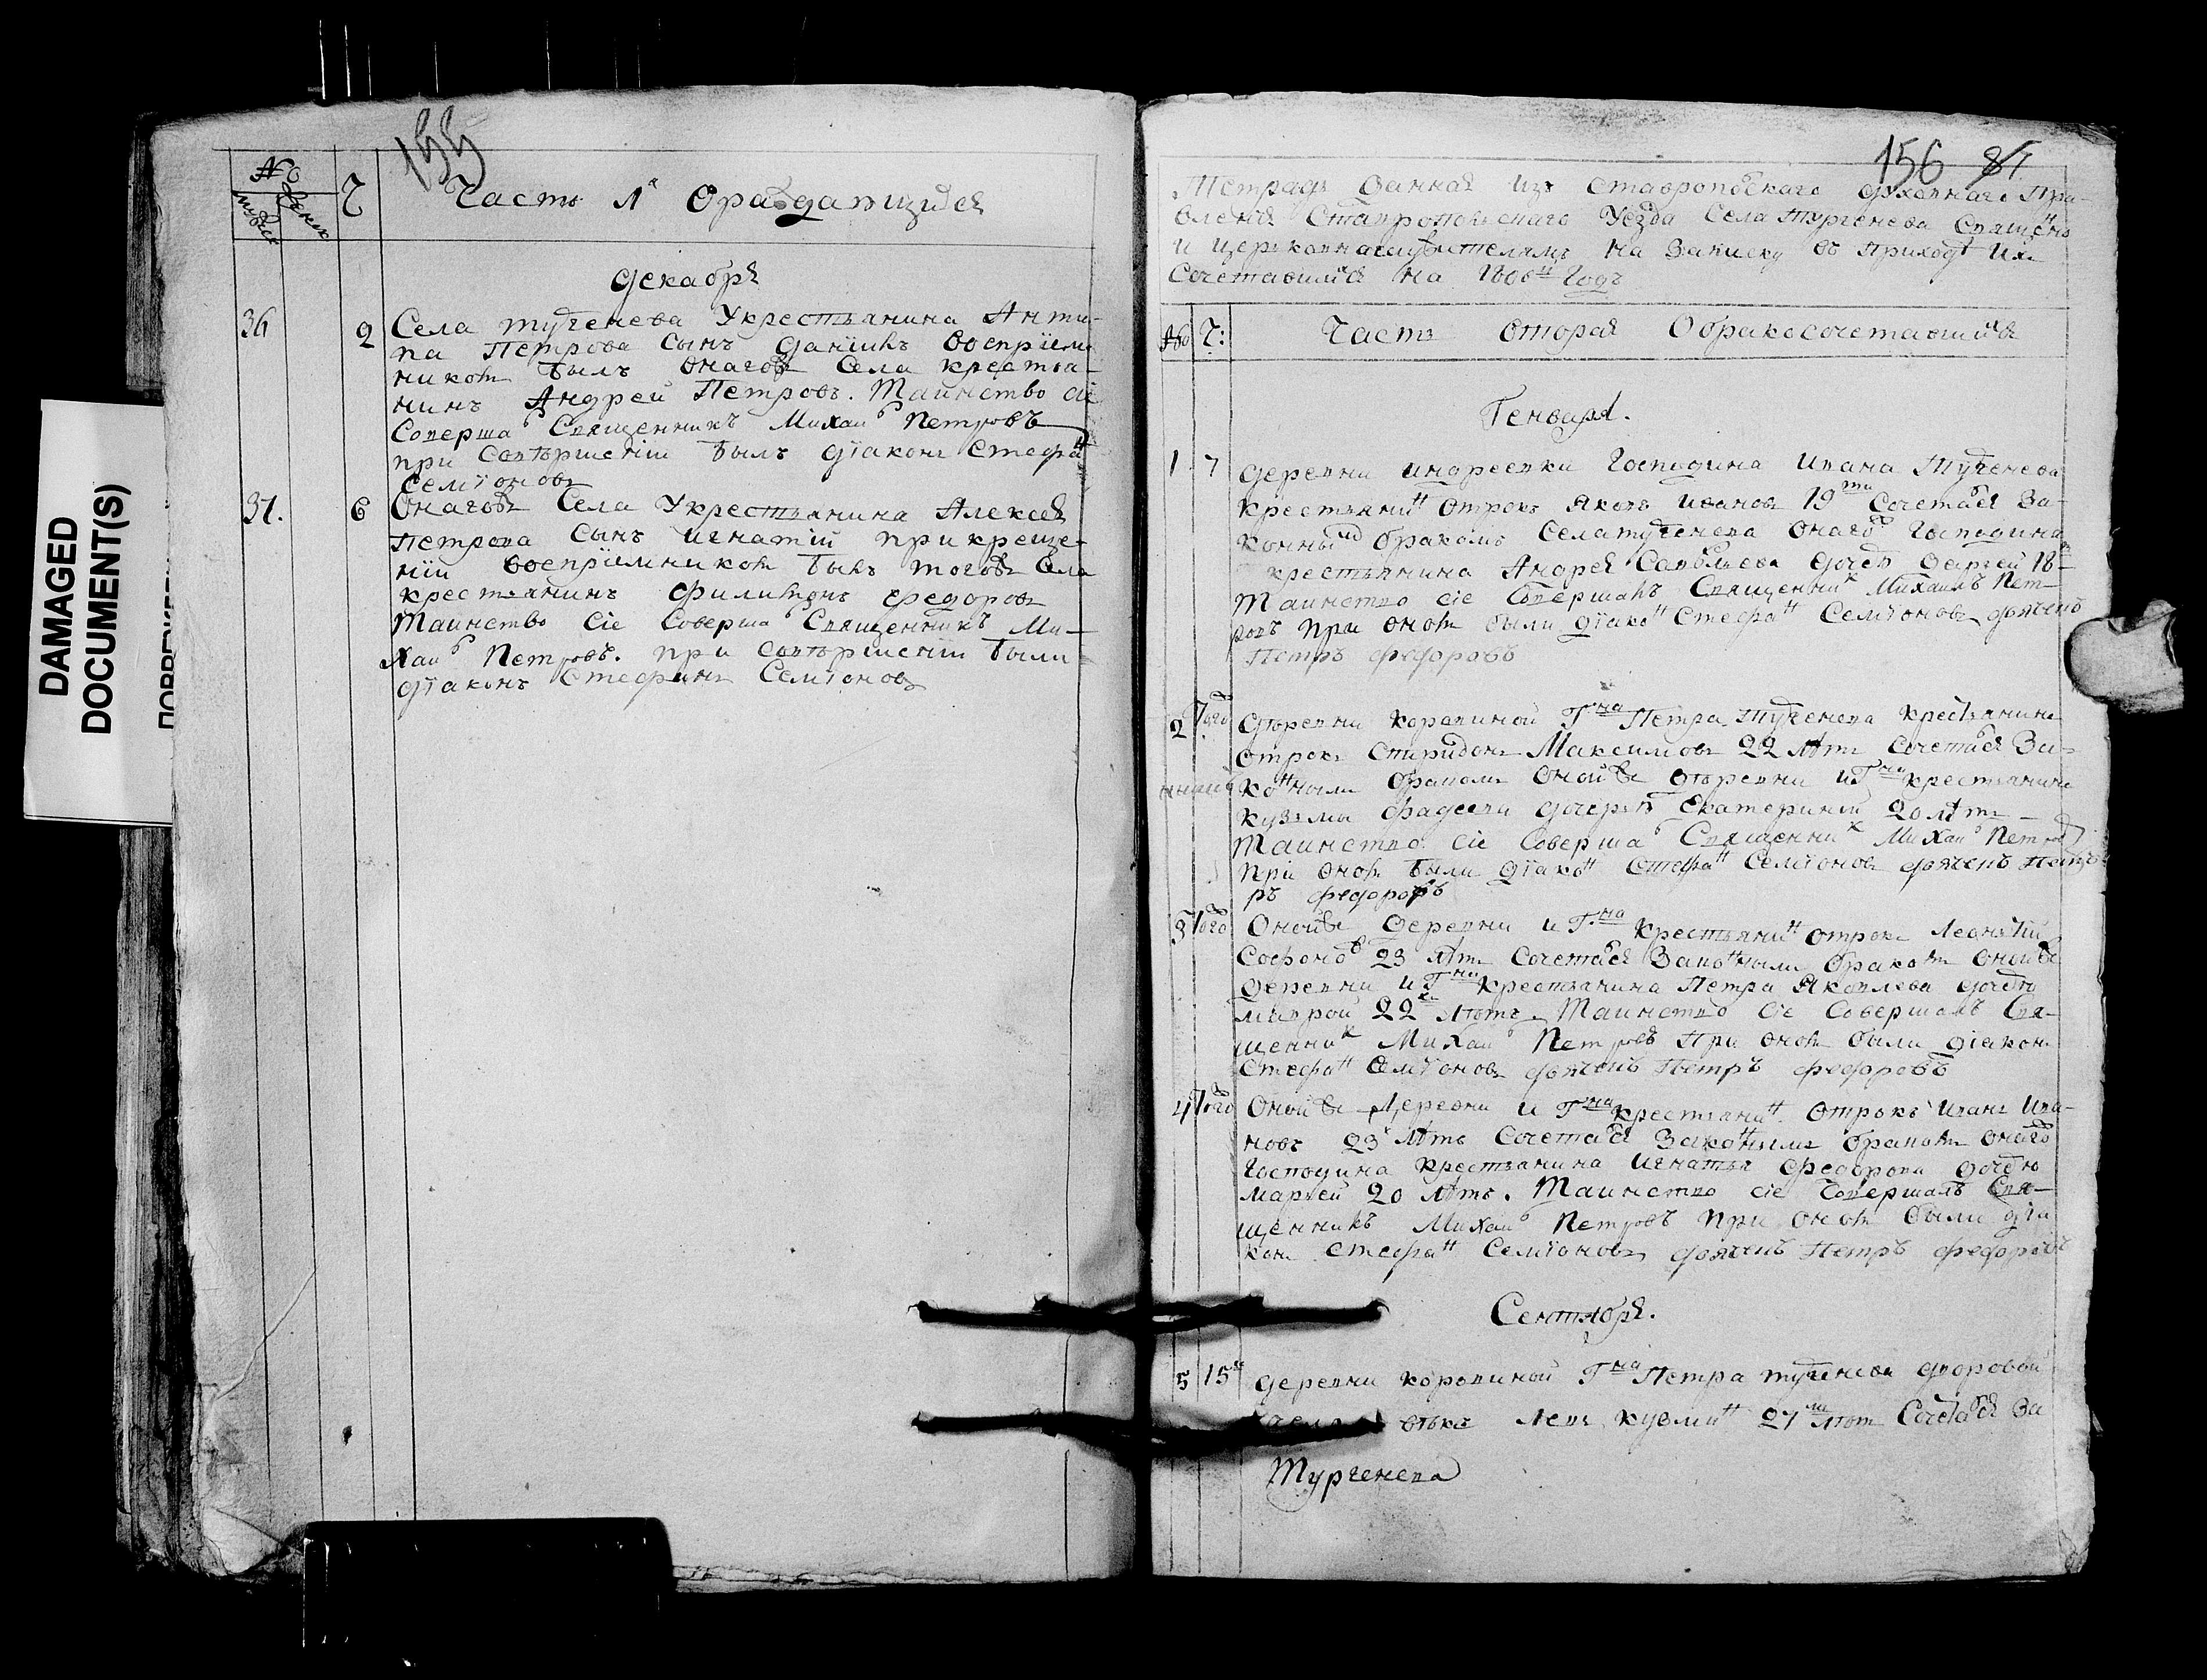 155
№
мужеск женск
Ч
Часть 1я О раждающихся
Декабря
36
2
Села тургенева У крестьянина Анти-
па Петрова сынъ Данiилъ воспрiем-
никомъ былъ онагожъ Села крестья-
нинъ Андрей Петровъ. Таинство сiе
Соверша л Священникъ Михаи л Петровъ
при совѣршенiи былъ дiаконъ Стефа н
Семiоновъ
37.
6
Онагожъ Села У крестьянина Алексея
Петрова сынъ Игнатiй при креще-
нiи воспрiемникомъ былъ тогожъ Села
крестьянинъ Филимонъ Федоровъ
Таинство сiе Соверша л Священникъ Ми-
хаи л Петровъ. при совѣршенiи были
дiаконъ Стефанъ Семiоновъ
DAMAGED
DOCUMENT(S)
156 81
Тетрадь данная изъ Ставропольскаго Духовнаго Пра-
вленiя Ставропольскаго Уѣзда Села Тургенева Священ н
и церковнослужителямъ на записку въ приходѣ ихъ
Сочетавшихся на 1806 й Годъ
№ Ч:
Часть вторая О бракосочетавшихся
Генваря.
1 7
Деревни Андреевки Господина Ивана Тургенева
крестьяни н отрокъ Яковъ Ивановъ 19 ти Сочетался За-
коннымъ бракомъ Села тургенева онаго Господина
крестьянина Андрея Савельева дочерью 18-
Таинство сiе Совершалъ Священни к Михаилъ Пет-
ровъ при ономъ были дiако н Стефа н Семiоновъ дьячекъ
Петръ Федоровъ
2 Того
Дѣревни Коровиной Г на Петра Тургенева крестьянинъ
отрокъ Спиридонъ Максимовъ 22 лѣтъ Сочетался За-
ко н нымъ бракомъ онойже дѣревни и Г на крестьянина
кузьмы Фадеева дочерью Екатериной 20 лѣтъ -
Таинство сiе Соверша л Священни к Михаи л Петров
При ономъ были дiако н Стефа н Семiоновъ дьячекъ Пет-
ръ Федоровъ
3 Того
Онойже Деревни и Г. на крестьяни н отрокъ Леонтiй
Софоно в 23 лѣтъ Сочетался Зако н нымъ бракомъ онойже
деревни и Г на крестьянина Петра Яковлева дочерью
Маврой 22 лѣтъ. Таинство сiе Совершалъ Свя-
щенни к Михаи л Петровъ При ономъ были дiаконъ
Стефа н Семiоновъ дьячекъ Петръ Федоровъ
4 Того
Онойже Деревни и Г на крестьяни н отрокъ Иванъ Ива-
новъ 23 лѣтъ Сочетался Зако н нымъ бракомъ онаго
Господина крестьянина Игнатья Федорова дочерью
Марьей 20 лѣтъ. Таинство сiе Совершалъ Свя-
щенникъ Михаи л Петровъ При ономъ были дiа
конъ Стефа н Семiоновъ дьячекъ Петръ Федоровъ
Сентября.
5 15 е
Деревни коровиной Г на Петра тургенева дворовой
Левъ кузми н 27 ми лѣтъ Сочетался За
Тургенева